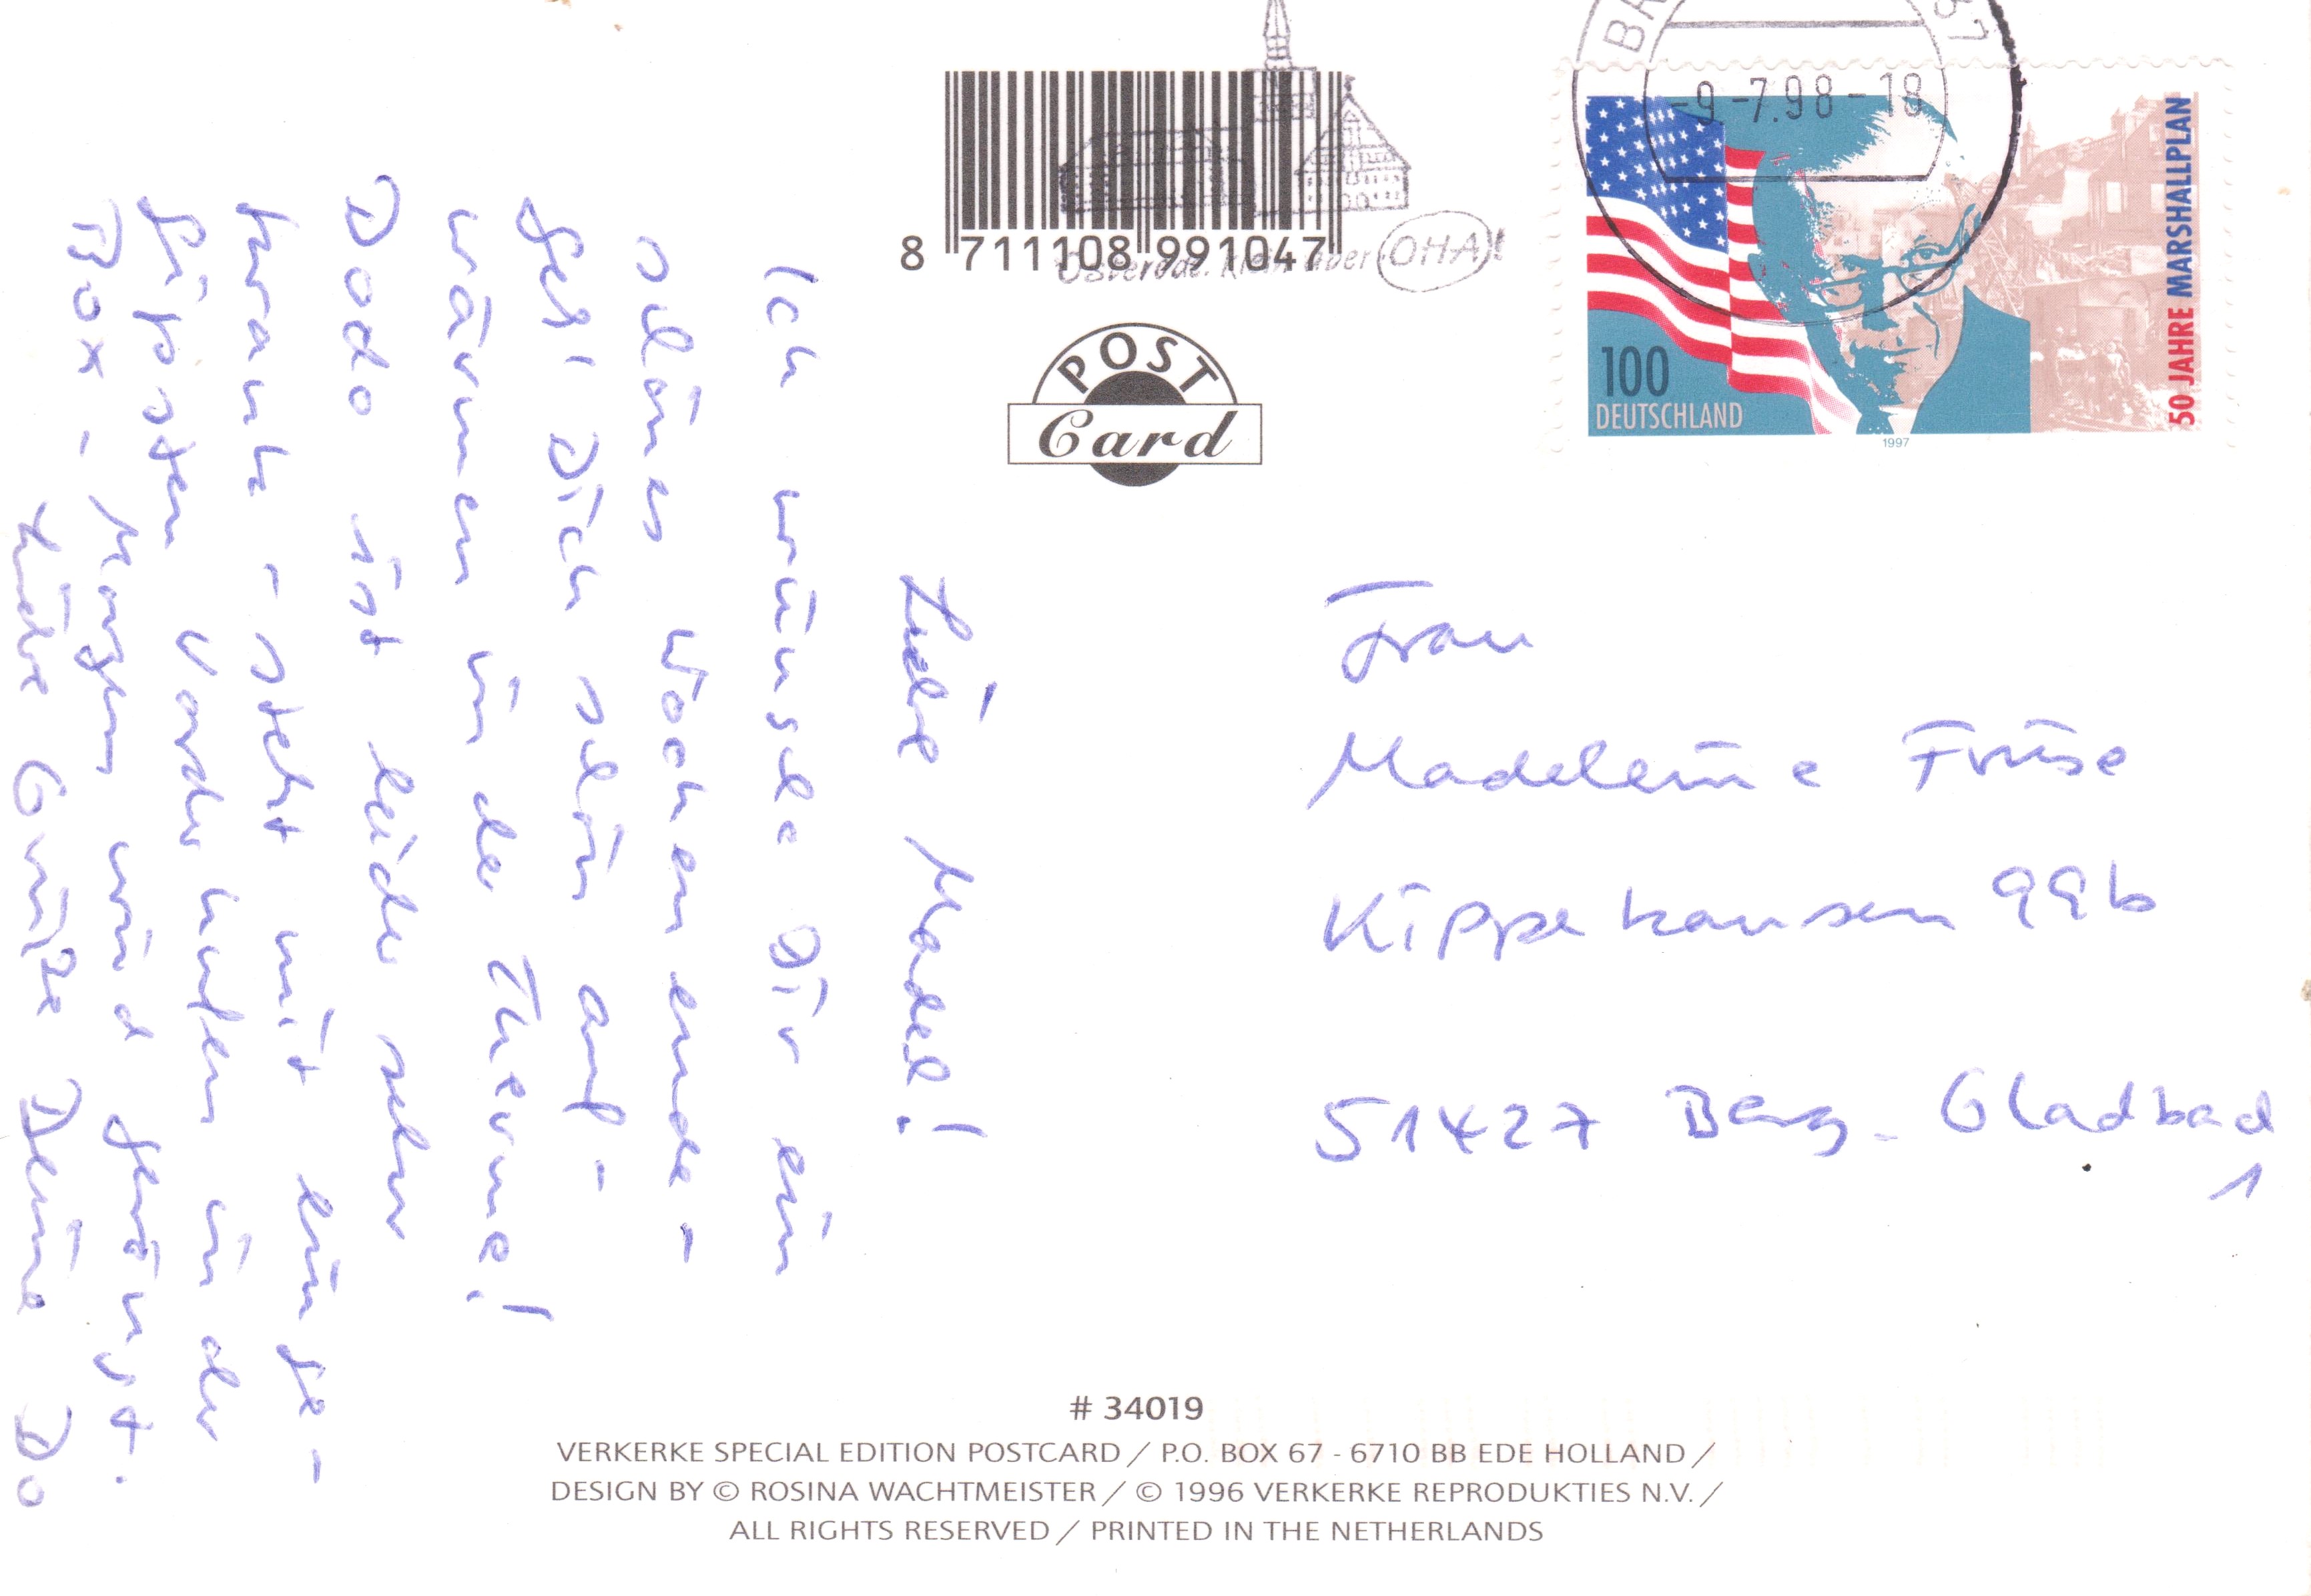 8 711108 991047
Osterode. Klein aber OHA!
POST
Card
-9.-7.98-18
100
DEUTSCHLAND
50 JAHRE MARSHALLPLAN
1997
Liebe Madel!
Ich wünsche Dir ein
schönes Wochenende -
geh' Dich schön auf-
wärmen in der Therme!
Dodo ist leider sehr
krank - steht mit einge-
gipsten Vorderhufen in der
Box -
Morgen wird geröngt.
Liebe Grüße Deine Do
Frau
Madeleine Friese
Kippekausen 99b
51427 Berg. Gladbach
1
# 34019
VERKERKE SPECIAL EDITION POSTCARD / P.O. BOX 67 - 6710 BB EDE HOLLAND /
DESIGN BY © ROSINA WACHTMEISTER / © 1996 VERKERKE REPRODUKTIES N.V. /
ALL RIGHTS RESERVED / PRINTED IN THE NETHERLANDS